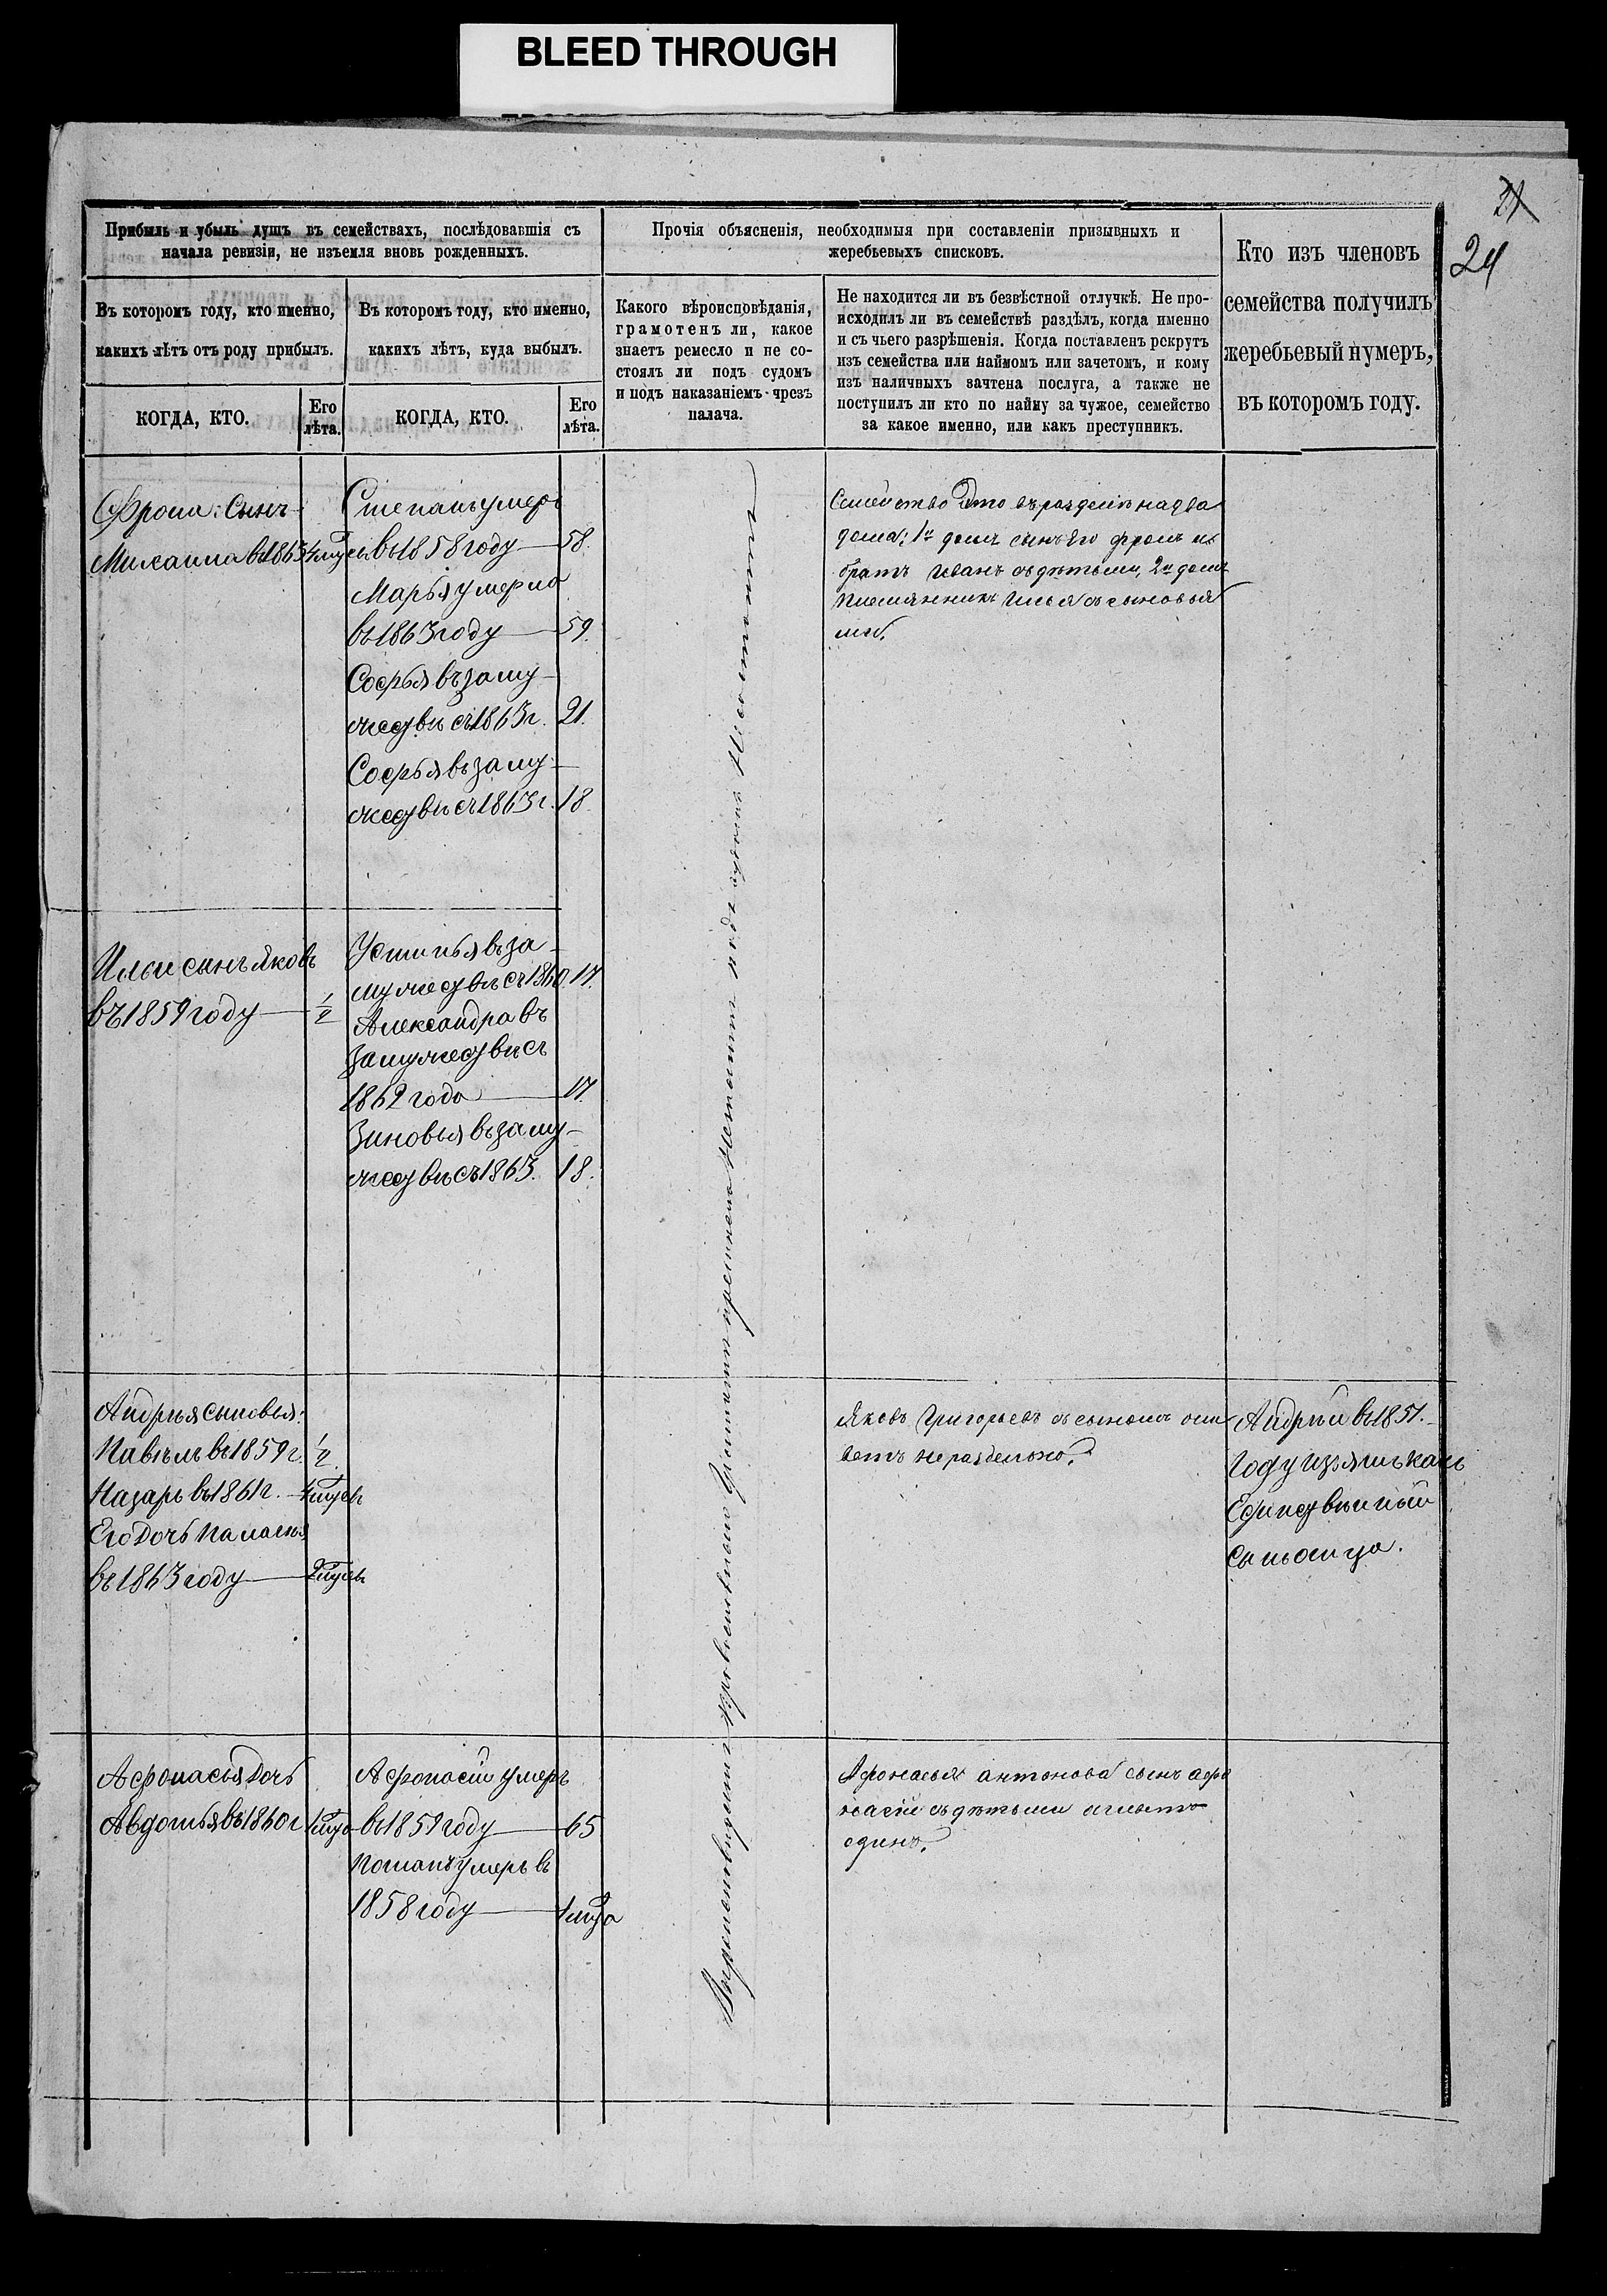 BLEED THROUGH
21
24
Прибыль и убыль душъ въ семействахъ, послѣдовавшія съ
начала ревизіи, не изъемля вновь рожденныхъ.
Въ которомъ году, кто именно,
какихъ лѣтъ отъ роду прибылъ.
КОГДА, КТО.
Его
лѣта.
Въ которомъ году, кто именно,
какихъ лѣтъ, куда выбылъ.
КОГДА, КТО.
Его
лѣта.
Прочія объясненія, необходимыя при составленіи призывныхъ и
жеребьевыхъ списковъ.
Какого вѣроисповѣданія,
грамотенъ ли, какое
знаетъ ремесло и не со-
стоялъ ли подъ судомъ
и подъ наказаніемъ чрезъ
палача.
Не находится ли въ безвѣстной отлучкѣ. Не про-
исходилъ ли въ семействѣ раздѣлъ, когда именно
и съ чьего разрѣшенія. Когда поставленъ рекрутъ
изъ семейства или наймомъ или зачетомъ, и кому
изъ наличныхъ зачтена послуга, а также не
поступилъ ли кто по найму за чужое, семейство
за какое именно, или какъ преступникъ.
Кто изъ членовъ
семейства получилъ
жеребьевый нумеръ,
въ которомъ году.
Фрола: Сынъ
Михаила въ 1863
Степанъ умеръ
въ 1858 году 58.
Марья умерла
въ 1863 году 59.
Софья въ заму-
жедвѣ съ 1863 г. 21.
Софья въ заму-
жедвѣ съ 1863 г. 18.
Семейство это въ разделѣ на два
дома: 1й домъ сынъ его фролъ и
братъ Иванъ съ дѣтьми, 2й домъ
племянникъ Илья съ сыновья
ми.
Ильи сынъ Яковъ
въ 1859 году 1/2
Устинья въ за-
мужедвѣ съ 1860. 17.
Александра въ
замужедвѣ съ
1862 года 17.
Зиновья въ заму-
жедвѣ съ 1863. 18.
Вѣроисповѣданія православнаго грамотѣ ремесла незнаютъ подъ судомъ несостоятъ
Андрѣя сыновья:
Павѣлъ въ 1859 г. 1/2.
Назаръ въ 1861 г.
Его Дочь Палагѣя
въ 1863 году
Яковъ Григорьевъ съ сыномъ жи
ветъ нераздельно.
Андрѣй въ 1851.
Году изъятъ какъ
Единсвѣнный
сынъ отца.
Афонасья Дочь
Авдотья въ 1860 г.
Афонасій умеръ
въ 1859 году 65
Потапъ умеръ въ
1858 году
Афонасья антонова сынъ афо
насій съ дѣтьми
одинъ.